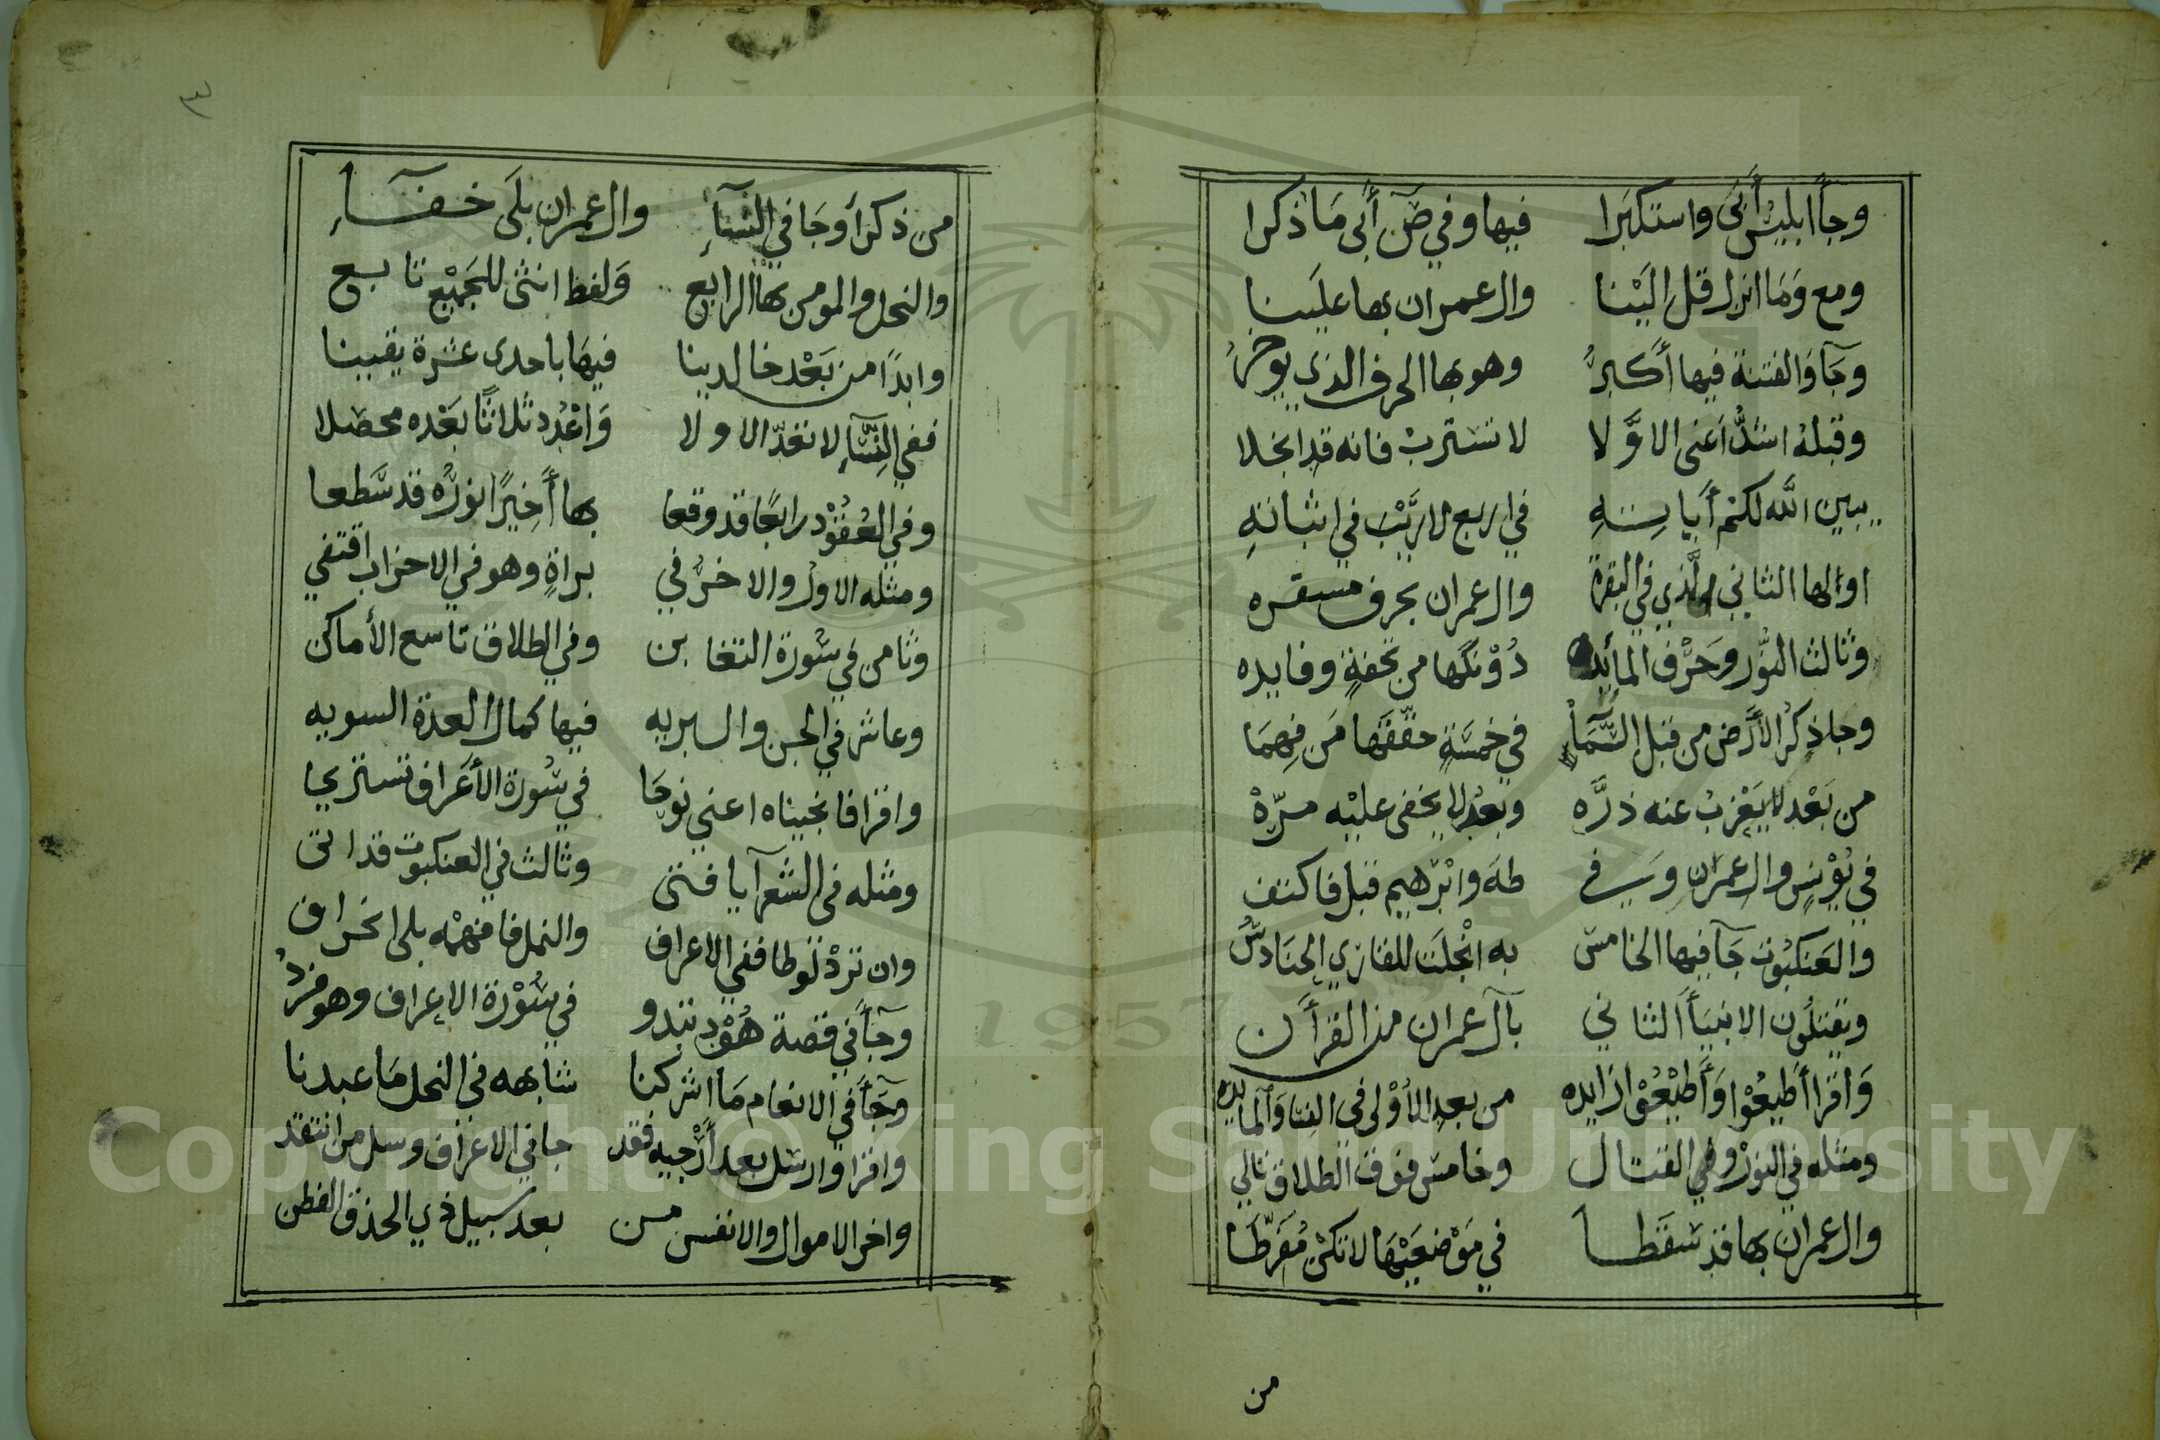 وجاابليس أبى واستكبرا فيها وفي ص أبى ما ذكرا
ومع وما انزل قل الينا وال عمران بها علينا
وجآ والفتنة فيها أكبر وهو بها الحرف الذي يوخر
وقبله اشد اعنى الاولا لا تسترب فانه قد انجلا
يبين الله لكم أياته في اربع لا ريب في اثباته
اوالها الثاني الذي في البقرة وال عمران بحرف مسقره
وثالث النور وحرف المائده دونكها من تحفة وفايده
وجا ذكر الأرض من قبل السما في خمسة حققها من فهما
من بعد لا يعزب عنه ذره وبعد لا يخفى عليه مره
في يونس وال عمران وفي طه وابرهيم قبل فاكتف
والعنكبوت جآ فيها الخامس به انجلت للقاري الحنادس
ويقتلون الانبيأ الثاني بآل عمران من القرأن
واقرا أطيعوا وأطيعوا زايده من بعد الأولى في النسا والمايده
ومثله في النور وفي القتال وخامس فوق الطلاق تالي
وال عمران بها قد سقطا في موضعيها لا تكن مفرطا
من
٣
من ذكر أو جا في النسآء وال عمران بلى خفآء
والنحل والمومن بها الرابع ولفظ انثى للجميع تابع
وابدا من بعد خالدينا فيها باحدى عشرة يقينا
ففي النسآء لا تعد الاولا واعدد ثلاثا بعده محصلا
وفي العقود رابعا قد وقعا بها أخيرا نوره قد سطعا
ومثله الاول والاخر في براة وهو في الاحزاب اقتفي
وثامن في سورة التغابن وفي الطلاق تاسع الأماكن
وعاشر في الجن والبريه فيها كمال العدة السويه
واقرا فانجيناه اعني نوحا في سورة الأعراف تستريحا
ومثله في الشعرآ يا فتى وثالث في العنكبوت قد اتى
وان ترد لوطا ففي الاعراف والنمل فافهمه بلى انحراف
وجآ في قصة هود تبدو في سورة الاعراف وهو فرد
وجآ في الانعام ما اشركنا شابهه في النحل ما عبدنا
واقرا وارسل بعد أرجيه فقد جا في الاعراف وسل من انتقد
واخر الاموال والانفس من بعد سبيل ذي الحذق الفطن
1957
Copyright © King Saud University